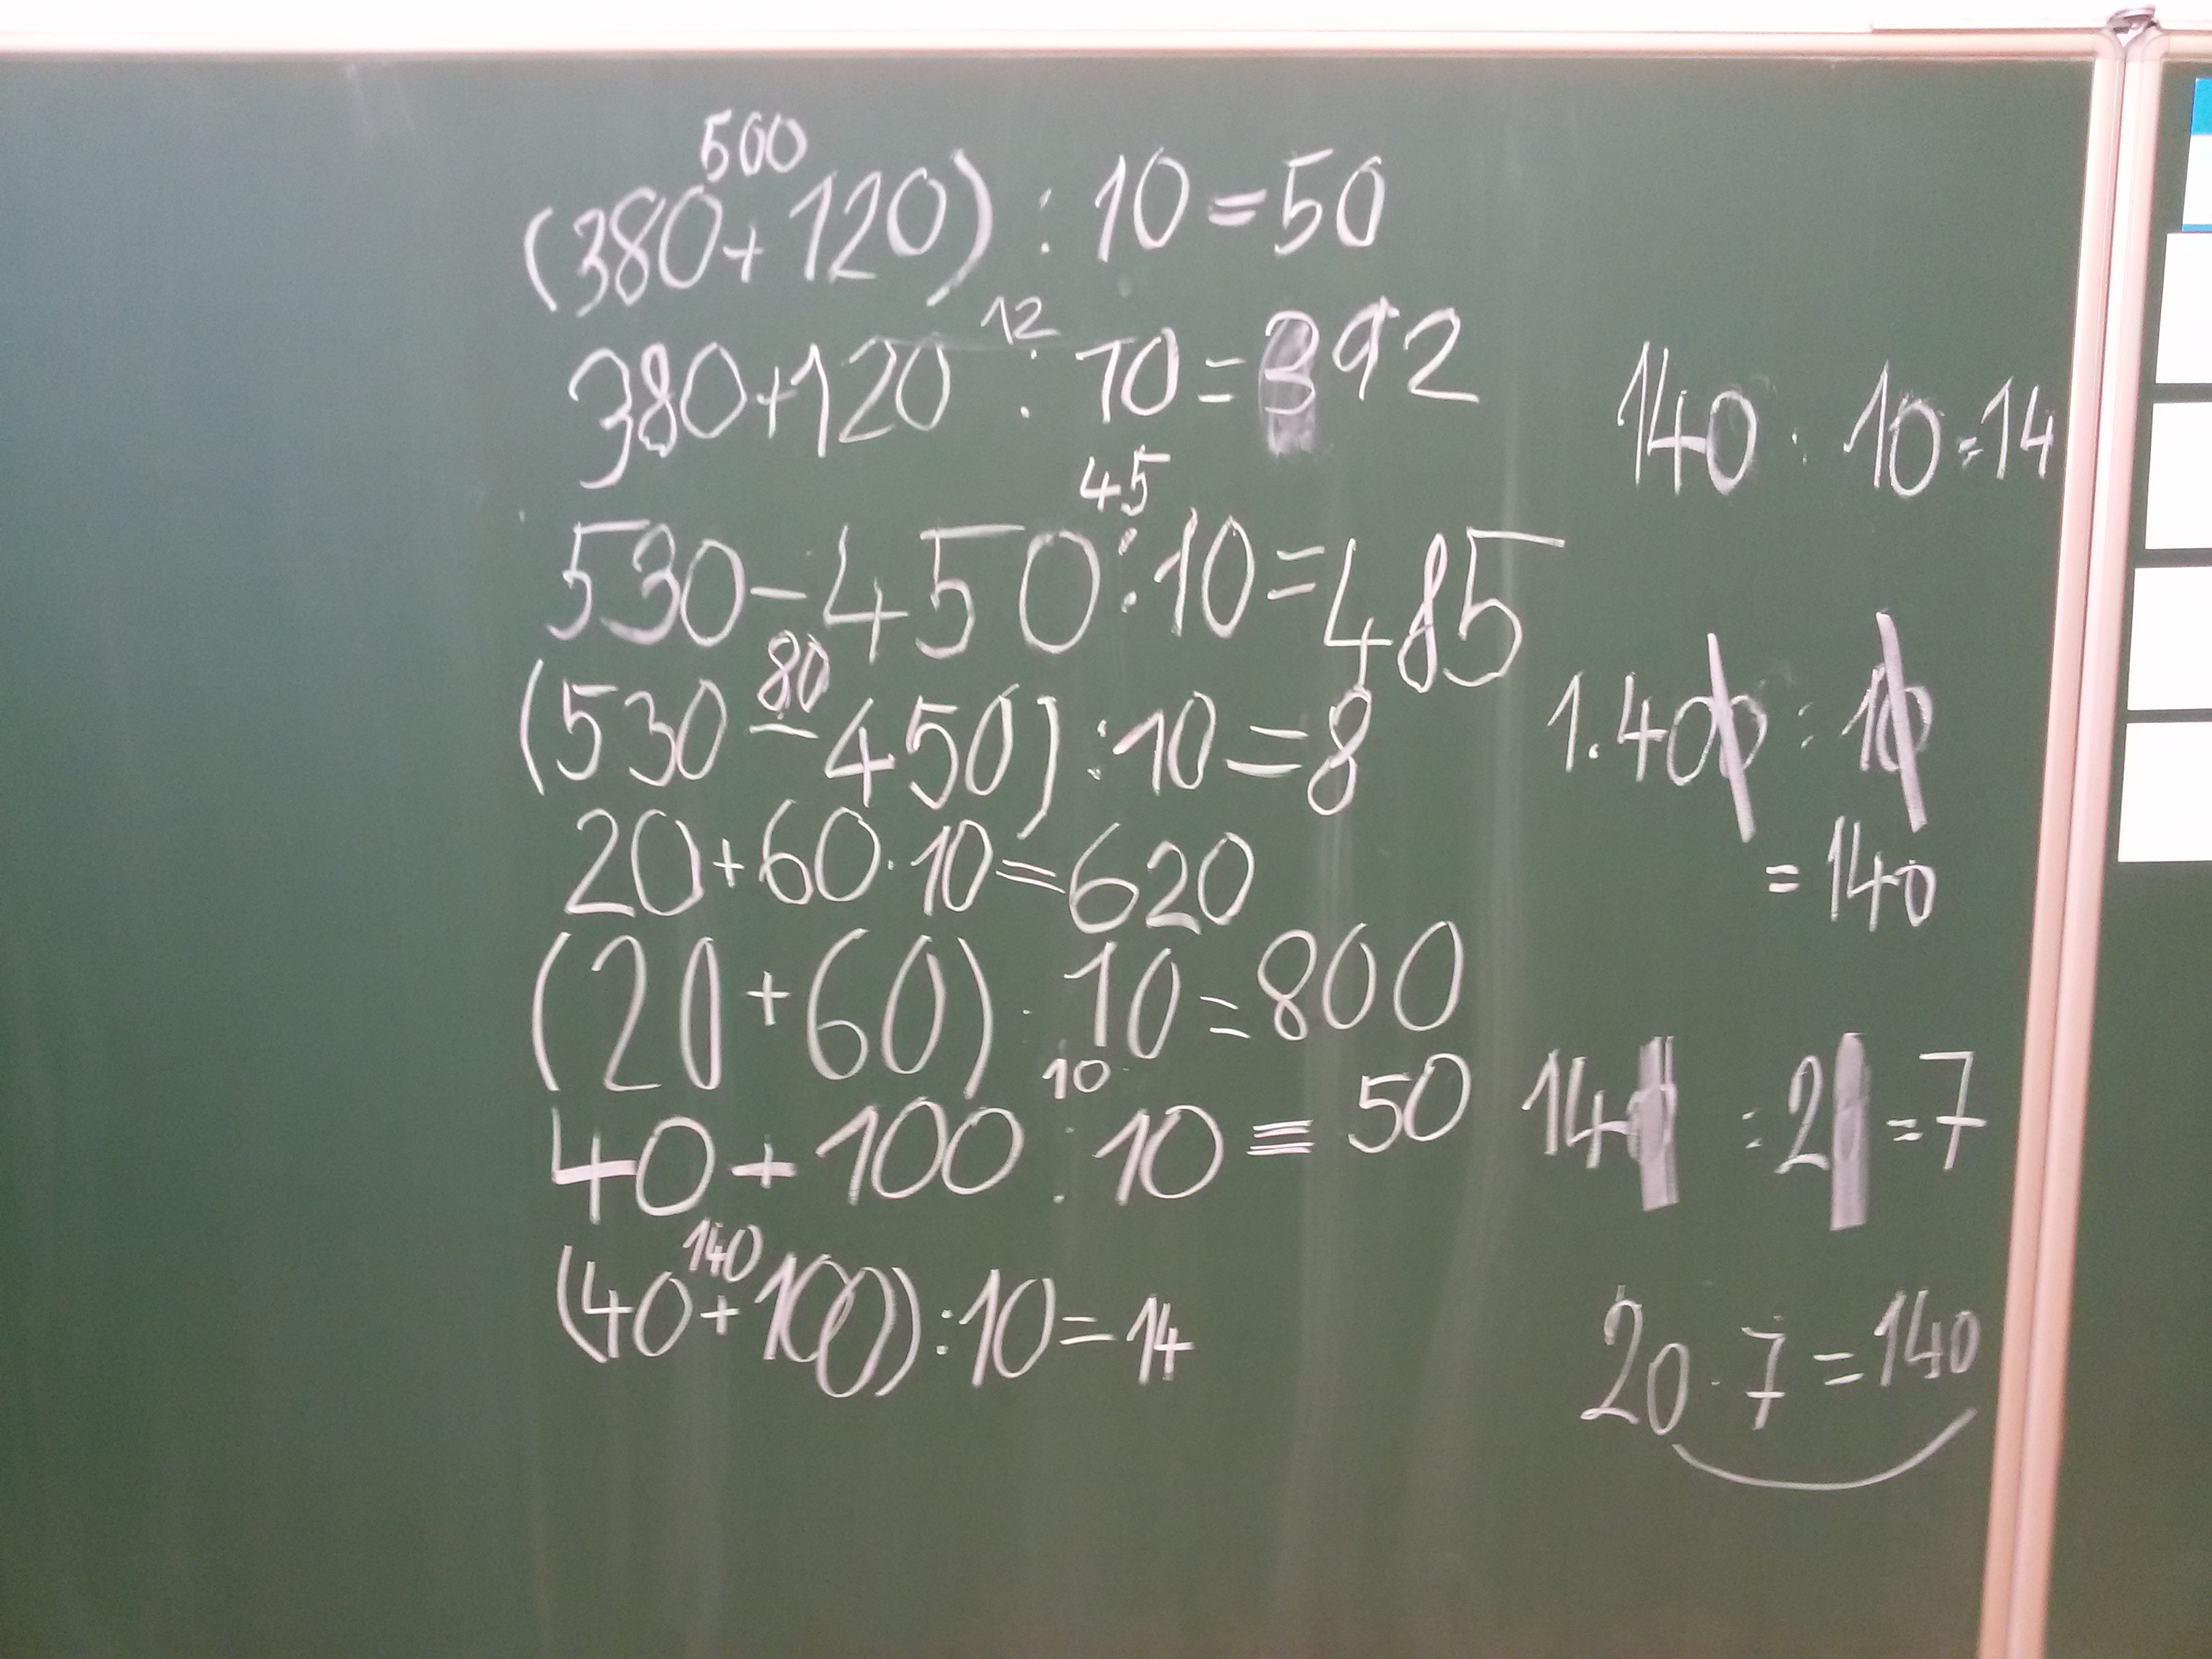 500
(380+120) : 10 = 50
12
380+120 : 10 = 392
45
530-450:10=485
80
(530-450) :10=8
20+60·10=620
(20+60) · 10=800
10
40+100 : 10 = 50
140
(40+100):10=14
140 : 10=14
1.400 : 10
= 140
140 :20 =7
20·7=140